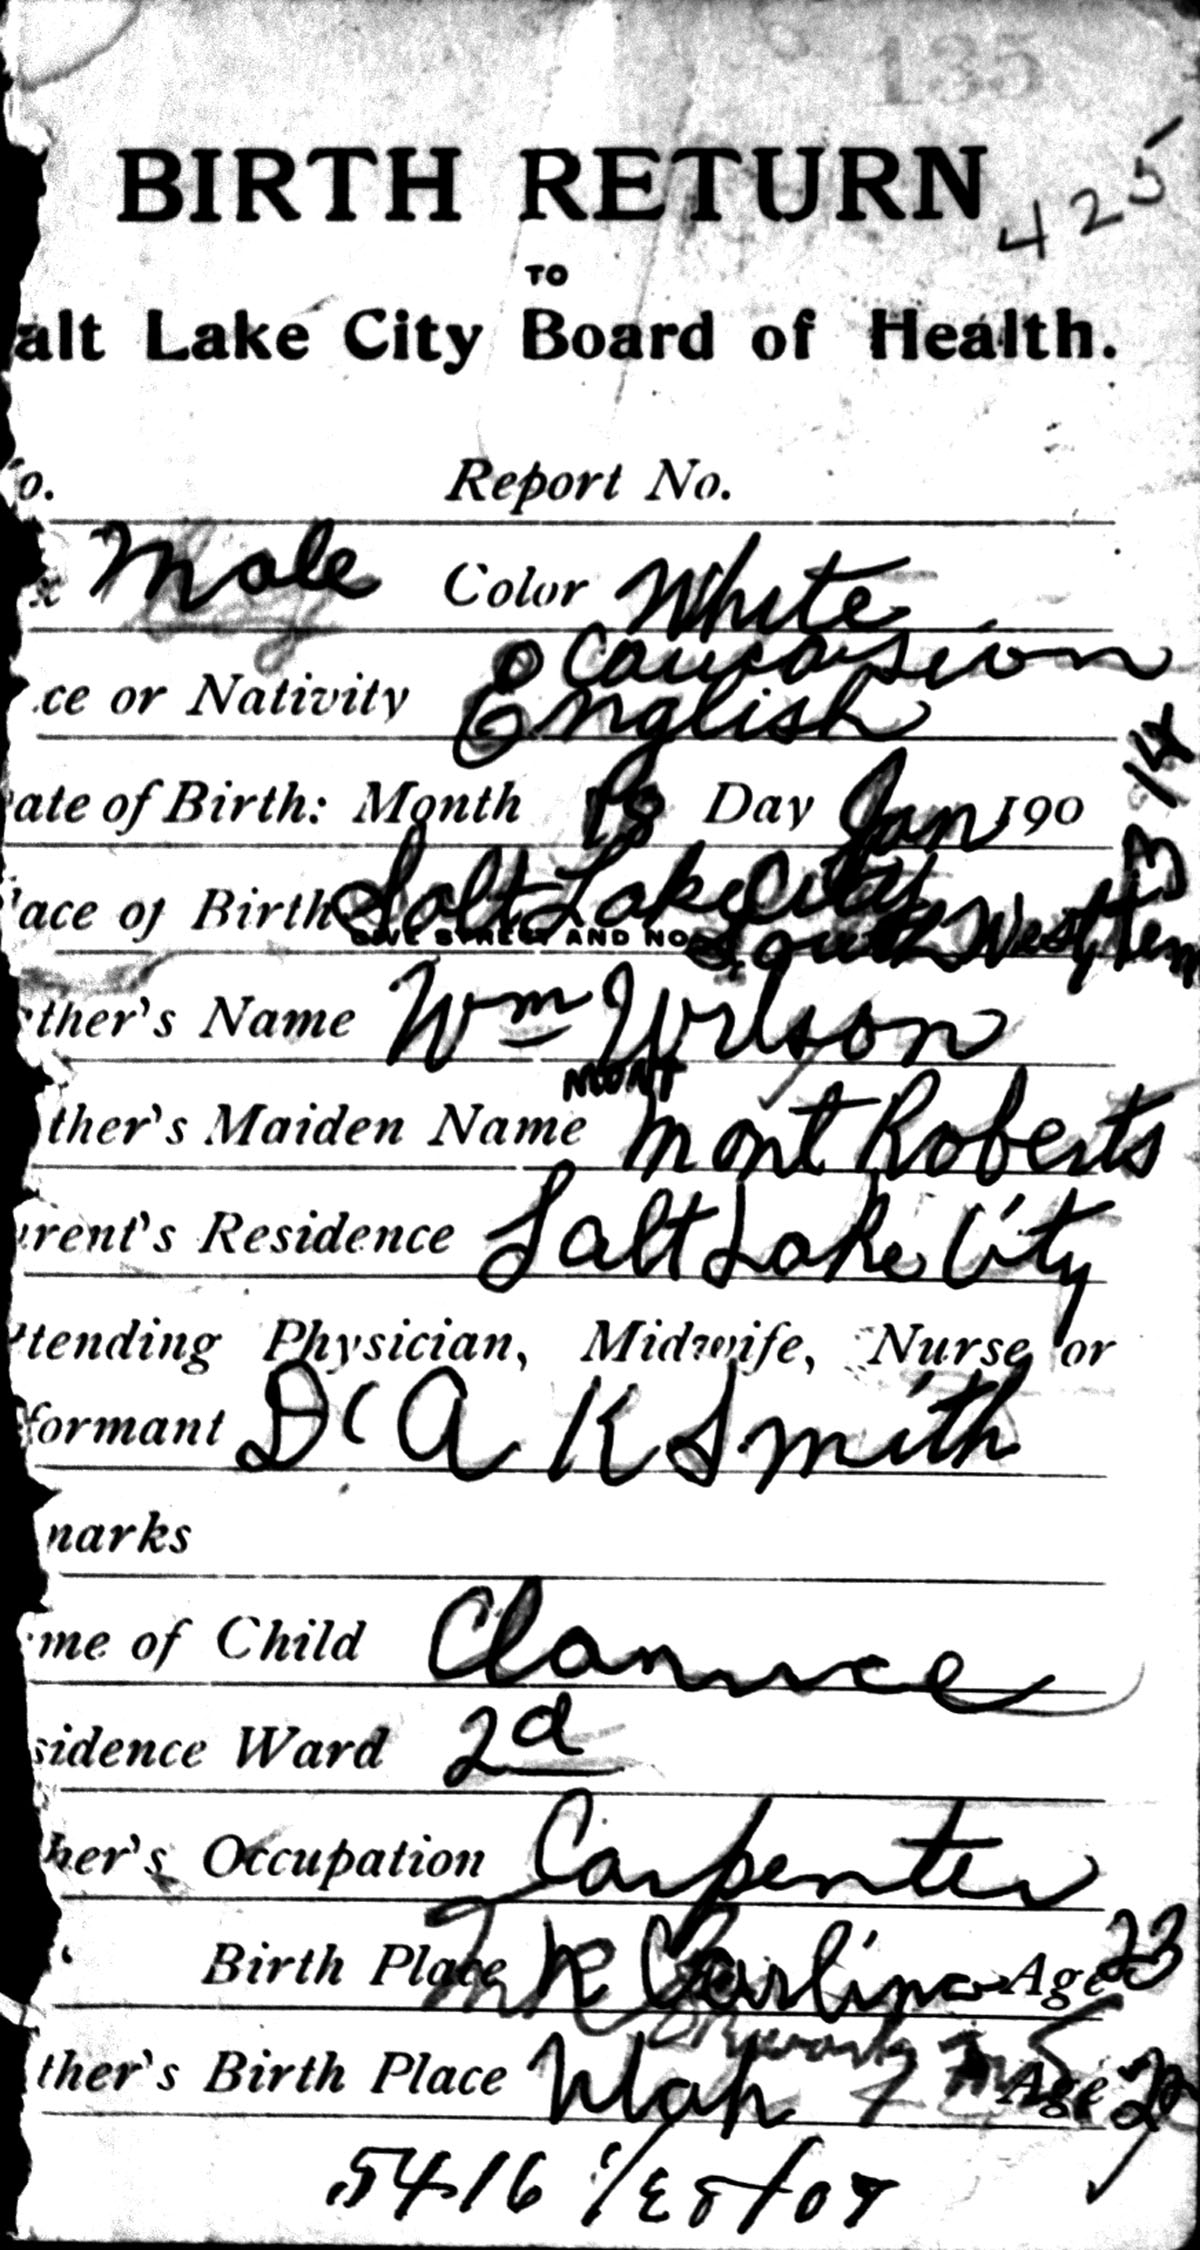 135
BIRTH RETURN 425
TO
alt Lake City Board of Health.
o. Report No.
x Male Color White
Caucasion
ce or Nativity English
ate of Birth: Month 18 Day Jan 190
14
ace of Birth Salt Lake City
GIVE STREET AND NO. South West Tem
ther's Name Wm Wilson
MONT
ther's Maiden Name Mont Roberts
rent's Residence Salt Lake City
ttending Physician, Midwife, Nurse or
formant Dr A K Smith
marks
me of Child Clarence
sidence Ward 2d
her's Occupation Carpenter
Birth Place Age 23
ther's Birth Place Utah Age
5416